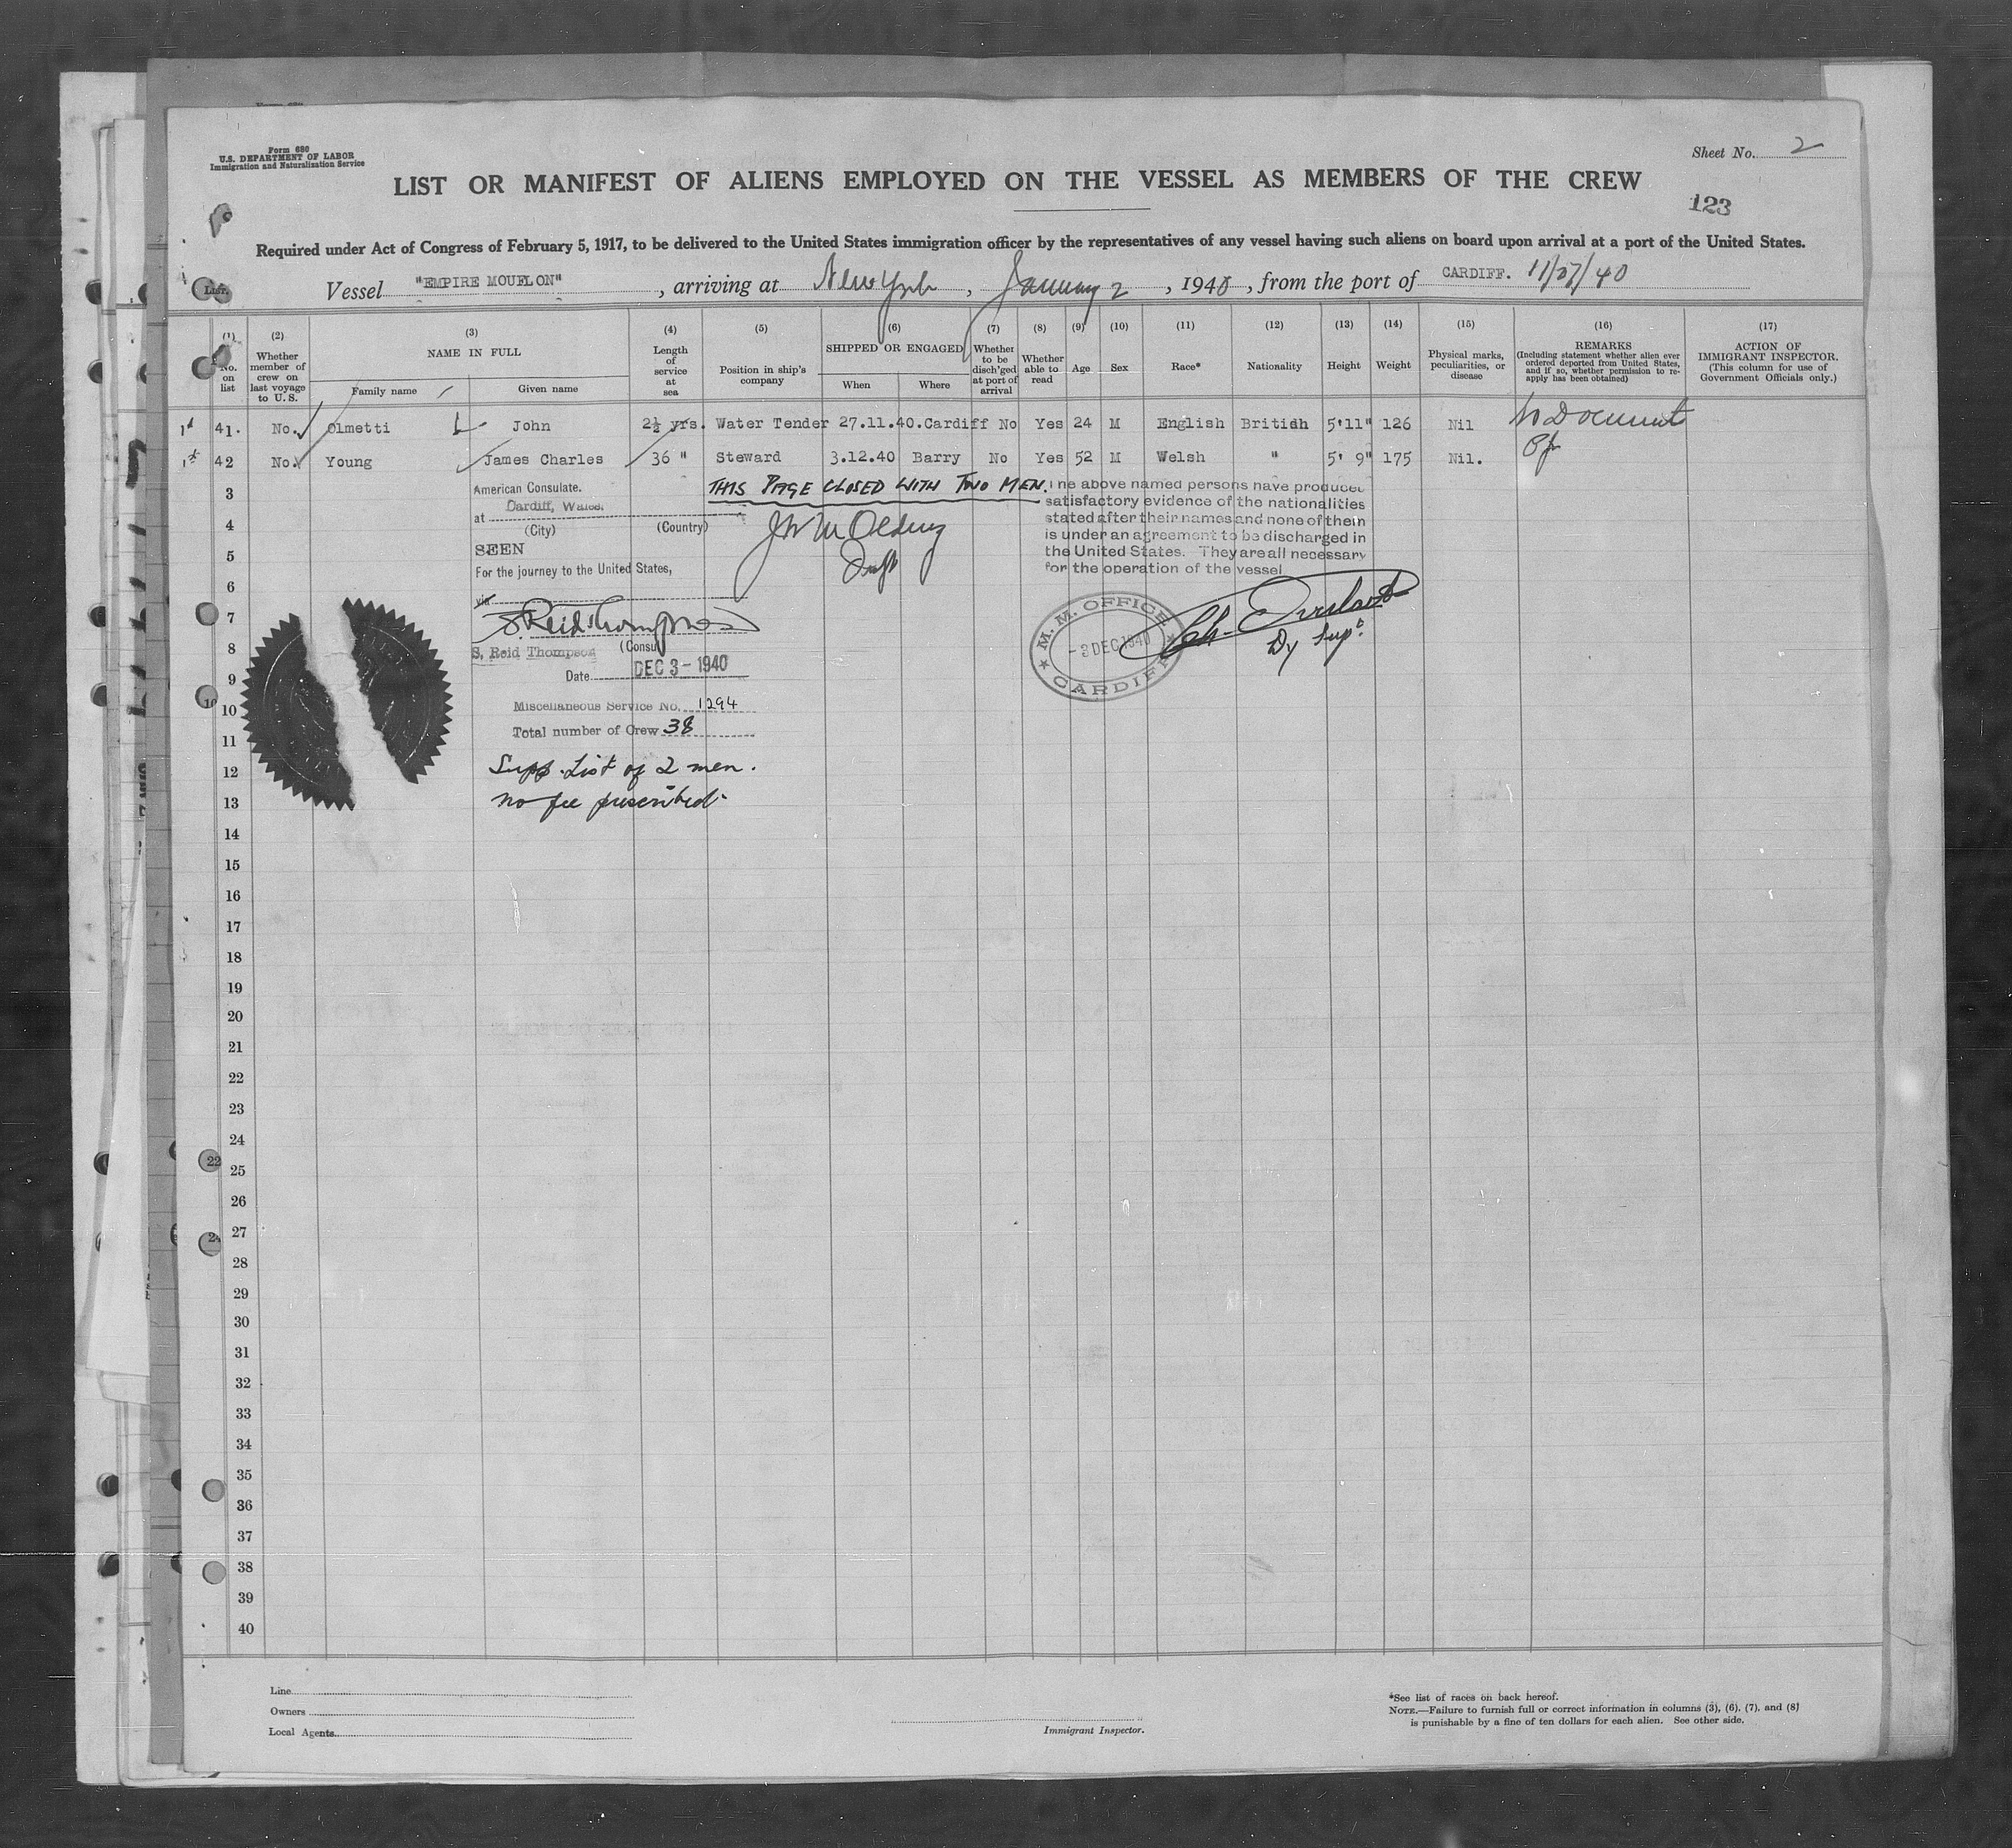 Form 680
U.S. DEPARTMENT OF LABOR
Immigration and Naturalization Service
Sheet No. 2
LIST OR MANIFEST OF ALIENS EMPLOYED ON THE VESSEL AS MEMBERS OF THE CREW
123
Required under Act of Congress of February 5, 1917, to be delivered to the United States immigration officer by the representatives of any vessel having such aliens on board upon arrival at a port of the United States.
Vessel "EMPIRE MOUFLON", arriving at New York, January 2, 1940, from the port of CARDIFF. 11/27/40
(1) No. on list
(2) Whether member of crew on last voyage to U. S.
(3) NAME IN FULL
Family name
Given name
(4) Length of service at sea
(5) Position in ship's company
(6) SHIPPED OR ENGAGED
When
Where
(7) Whether to be disch'ged at port of arrival
(8) Whether able to read
(9) Age
(10) Sex
(11) Race*
(12) Nationality
(13) Height
(14) Weight
(15) Physical marks, peculiarities, or disease
(16) REMARKS
(Including statement whether alien ever ordered deported from United States, and if so, whether permission to reapply has been obtained)
(17) ACTION OF IMMIGRANT INSPECTOR.
(This column for use of Government Officials only.)
41. No. Olmetti John 2½ yrs. Water Tender 27.11.40. Cardiff No Yes 24 M English Britidh 5'11" 126 Nil No Document
42 No. Young James Charles 36 " Steward 3.12.40 Barry No Yes 52 M Welsh " 5' 9" 175 Nil.
3
4
5
6
7
8
9
10
11
12
13
American Consulate.
at Cardiff, Wales.
(City) (Country)
SEEN
For the journey to the United States,
via
S. Reid Thompson
S. Reid Thompson (Consul
Date DEC 3 - 1940
Miscellaneous Service No. 1294
Total number of Crew 38
Supp. List of 2 men.
no fee prescribed.
THIS PAGE CLOSED WITH TWO MEN.
The above named persons have produced
satisfactory evidence of the nationalities
stated after their names and none of them
is under an agreement to be discharged in
the United States. They are all necessary
for the operation of the vessel
M. M. OFFICE
- 3 DEC 1940
CARDIFF
Dy Supt.
14
15
16
17
18
19
20
21
22
23
24
25
26
27
28
29
30
31
32
33
34
35
36
37
38
39
40
Line
Owners
Local Agents
Immigrant Inspector.
*See list of races on back hereof.
NOTE.—Failure to furnish full or correct information in columns (3), (6), (7), and (8)
is punishable by a fine of ten dollars for each alien. See other side.